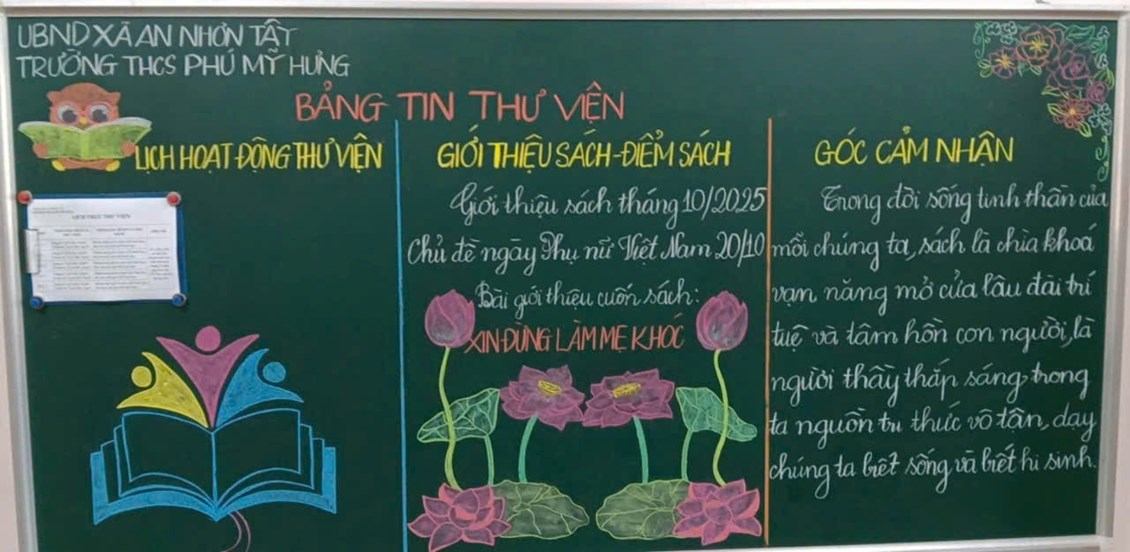 UBND XÃ AN NHƠN TÂY
TRƯỜNG THCS PHÚ MỸ HƯNG
BẢNG TIN THƯ VIỆN
LỊCH HOẠT ĐỘNG THƯ VIỆN
LỊCH TRỰC THƯ VIỆN
GIỚI THIỆU SÁCH-ĐIỂM SÁCH
Giới thiệu sách tháng 10/2025
Chủ đề ngày Phụ nữ Việt Nam 20/10
Bài giới thiệu cuốn sách:
XIN ĐỪNG LÀM MẸ KHÓC
GÓC CẢM NHẬN
Trong đời sống tinh thần của
mỗi chúng ta, sách là chìa khoá
vạn năng mở cửa lâu đài trí
tuệ và tâm hồn con người, là
người thầy thắp sáng trong
ta nguồn tri thức vô tận, dạy
chúng ta biết sống và biết hi sinh.